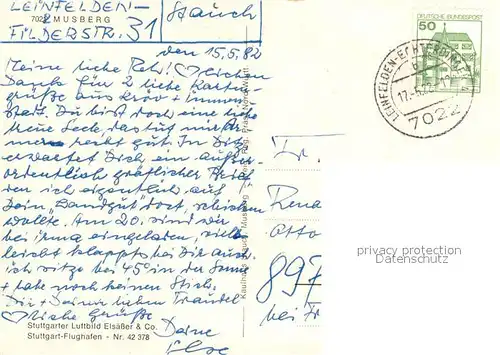 LEINFELDEN-
7022 MUSBERG
FILDERSTR. 31
Stauch
den 15.5.82
Meine liebe Rehi! Herzlichen
Dank für 2 liebe Karten-
grüße aus Kröv + Immen-
staad. Du bist doch eine liebe
treue Seele, das tut mir
recht gut. In Ditz.
erwartet Dich ein außer-
ordentlich gräflicher Brief
den ich eigentlich auf
Dein "Landgut" dort schicken
wollte. Am 20. sind wir
bei Irma eingeladen, viel-
leicht klappts bei Dir auch.
ich sitze bei 45° in der Sonne
+ habe noch keinen Stich.
Dir + Deinen lieben Traudel
liebe Grüße
Deine
Else
Stuttgarter Luftbild Elsäßer & Co.
Stuttgart-Flughafen - Nr. 42 378
DEUTSCHE BUNDESPOST
50
LEINFELDEN-ECHTERDINGEN
b
7022
Fr.
Rena
Otto
897
bei
privacy protection
Datenschutz